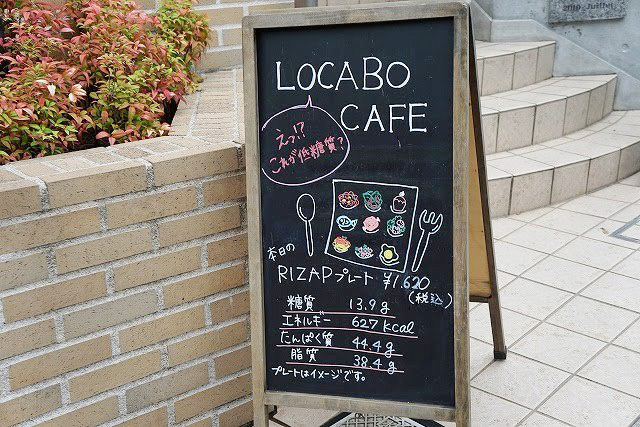 LOCABO
CAFE
えっ!?
これが低糖質?
本日の
RIZAPプレート ¥1,620
(税込)
糖質 13.9g
エネルギー 627kcal
たんぱく質 44.4g
脂質 38.4g
プレートはイメージです。